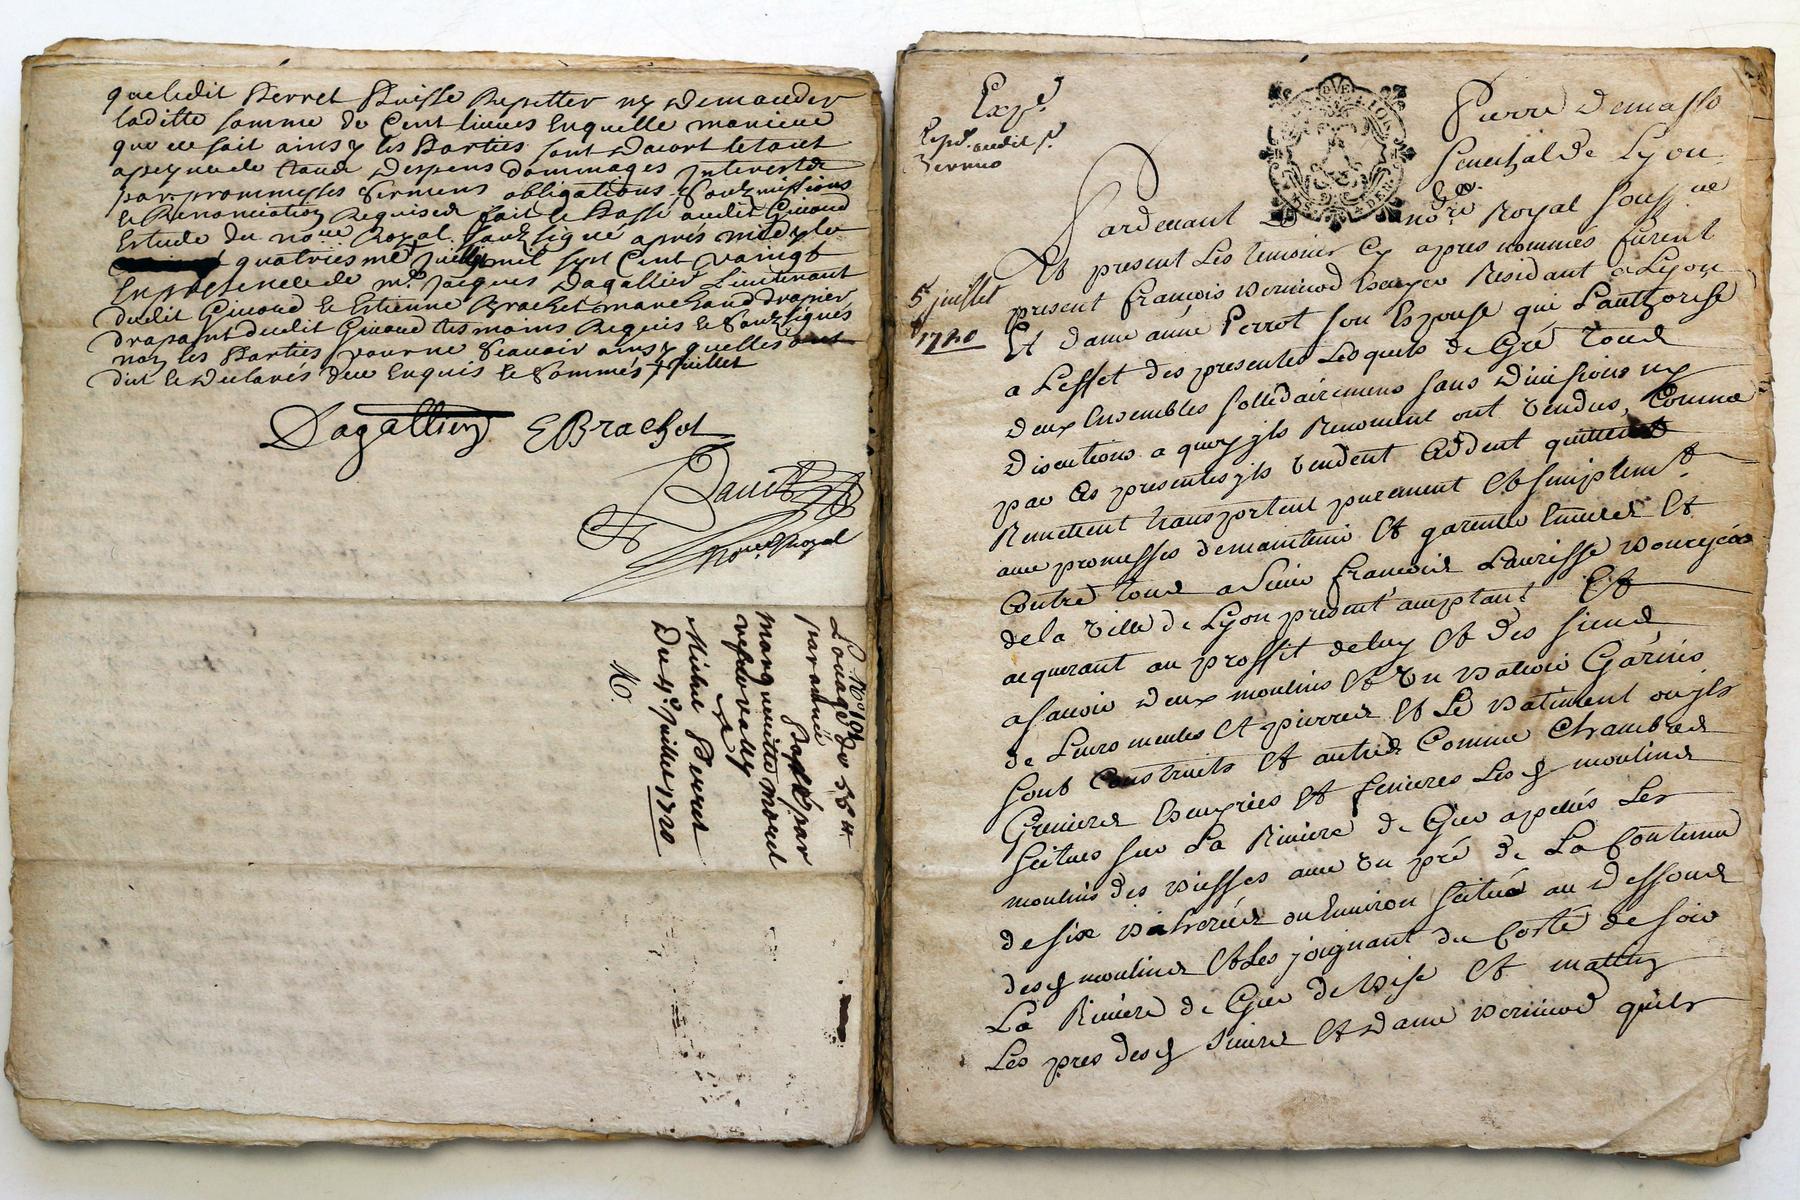 que ledit Perret Puisse Repetter ny Demander
laditte somme de Cent livres Enquelle maniere
que ce soit ainsy les Parties sont Dacort le tout
apeyne de tous Despens Dommages Interests
par promesses sermens obligations Soubmissions
Et Renonciation Requises fait Et Passé audit Givord
Estude du note Royal soubsigné aprés midy le
quatriesme Juillet mil sept Cent vaingt
En presence de mr Jacques Dagallier Lieutenant
dudit Givord Et Estienne Brachet marchand drapier
drapant dudit Givord tesmoins Requis Et Soubsignés
non les Parties pour ne Scavoir ainsy quelles ont
dit Et Declarés de ce Enquis Et Sommés juillet
Dagallier EBrachet
note Royal
Louage de 55 ll
Passé par
marguerite morel
Michel Perret
Du 4e Juillet 1720
Expé
Expé audit sr
Pierre Demasso
Senechal de Lyon
Pardevant Le nore Royal Soussné
Et present Les temoins Cy apres nommés furent
5e juillet
1720
present François Residant a Lyon
Et dame anne Perrot son Espouse qui Lauthorise
a Leffet des presentes Lesquels de Gré Tous
deux Ensembles sollidairement sans Division ny
Discutions a quoy ils Renoncent ont Vendus, Comme
par Ces presentes ils Vendent Cedent quittent
Remettent transportent purement Et simplemt
avec promesses de maintenir Et garentir Envers Et
Contre tous a Sieur François Bourgeois
de la Ville de Lyon present acceptant Et
acquerant au proffit de luy Et des siens
a scavoir Deux moulins Et Un Batoir Garnis
de Leurs meules Et pierres Et Le Batiment ou ils
sont Construits Et autres Comme Chambres
Greniers Ecuyries Et fenieres Lesd moulins
scitues sur La Riviere de Gier appellés Les
moulins des avec un pré de La Contenue
de six ou Environ scitué au Dessous
desd moulins Et Les joignant du Costé de soir
La Riviere de Gier de bise Et matin
Les pres desd Sieur Et Dame quils